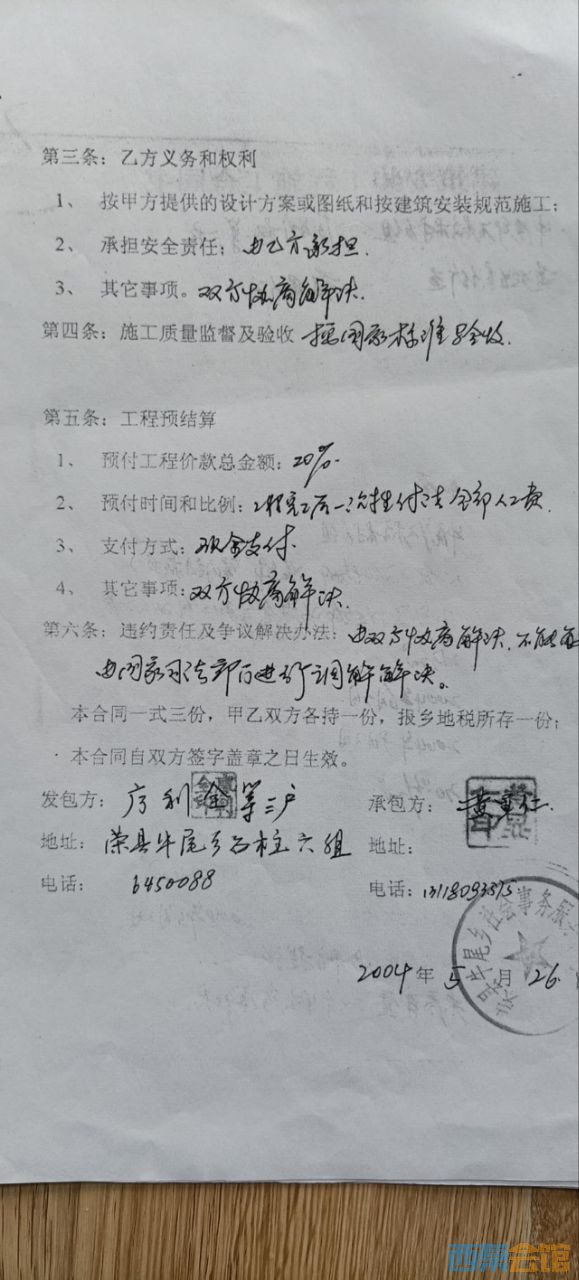 第三条：乙方义务和权利
1、 按甲方提供的设计方案或图纸和按建筑安装规范施工；
2、 承担安全责任：由乙方承担.
3、 其它事项。双方协商解决.
第四条：施工质量监督及验收 按国家标准验收.
第五条：工程预结算
1、 预付工程价款总金额：20%.
2、 预付时间和比例：工程完工后一次性付清全部人工费.
3、 支付方式：现金支付.
4、 其它事项：双方协商解决.
第六条：违约责任及争议解决办法：由双方协商解决.不能
由国家司法部门进行调解解决。
本合同一式三份，甲乙双方各持一份，报乡地税所存一份；
本合同自双方签字盖章之日生效。
发包方： 利金等三户 承包方：黄
地址：荣县牛尾乡石柱六组 地址：
电话： 6450088 电话：
牛尾乡社会事务服
2004年5月26
西祠会馆